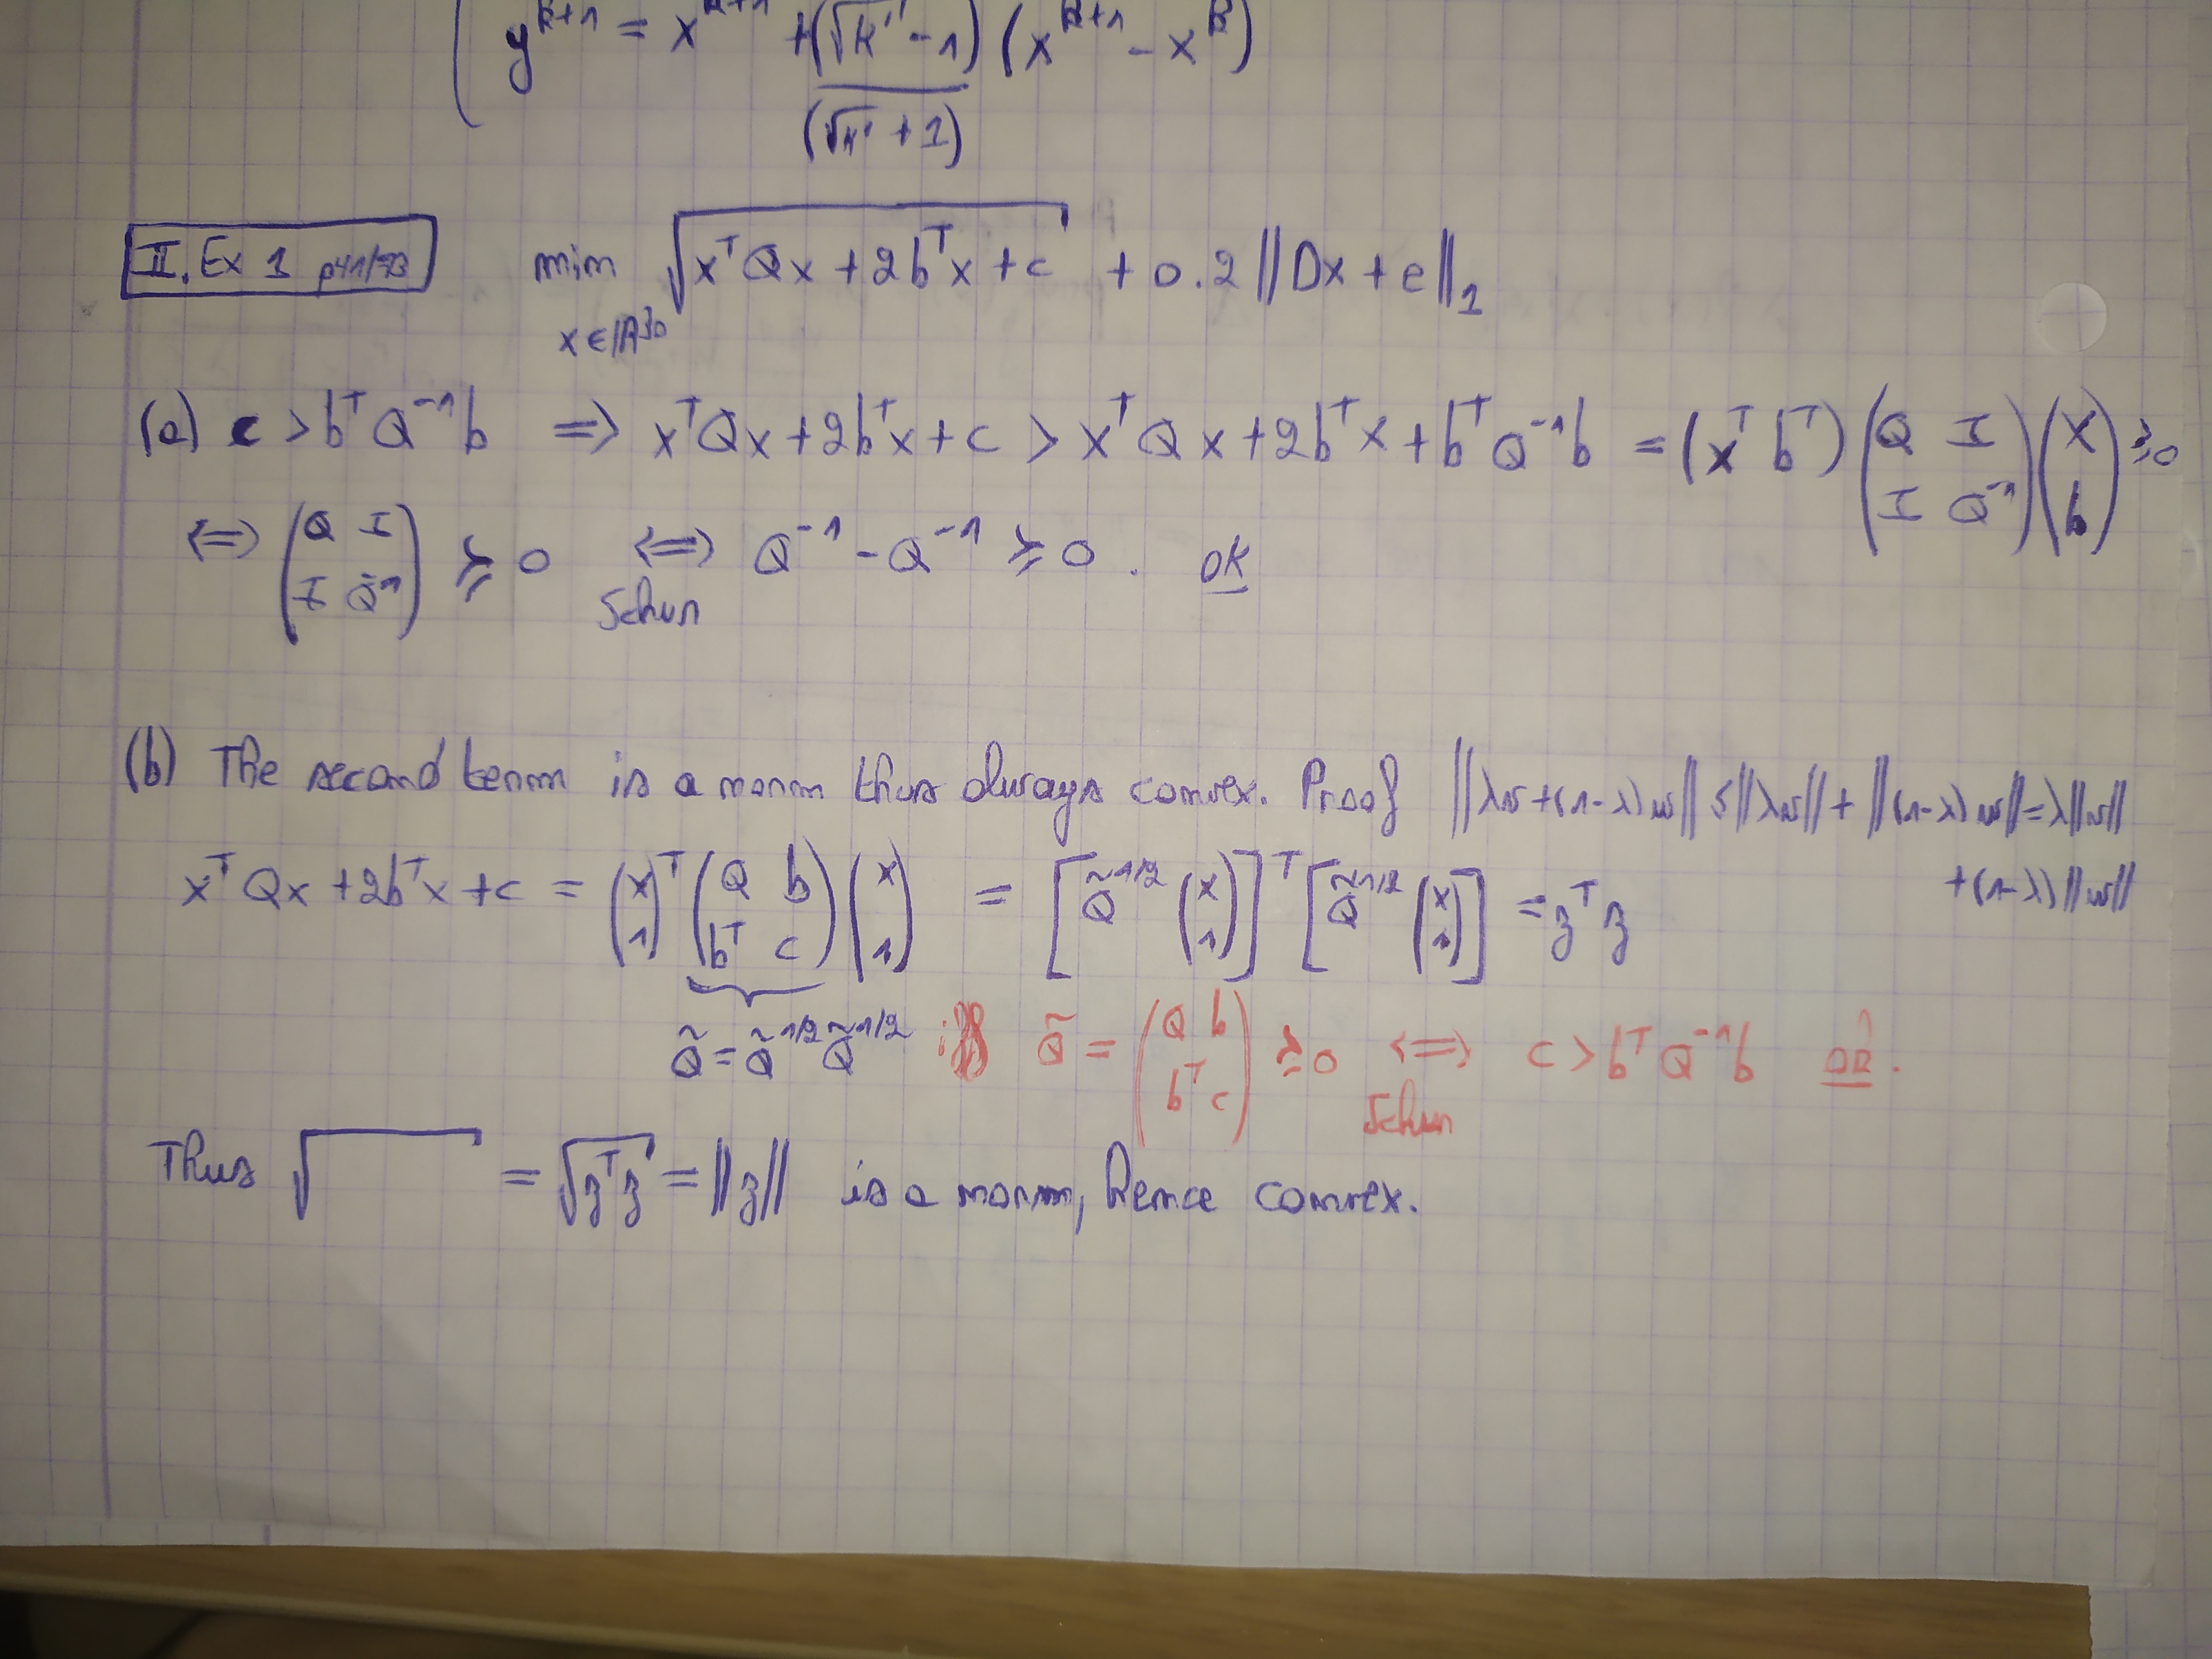 y^{k+1} = x^{k+1} + (√κ' - 1) (x^{k+1} - x^k)
(√κ' + 1)
II. Ex 1 min √(x^T Q x + 2b^T x + c) + 0.2 ||Dx + e||_1
x ∈ ℝ^{30}
(a) c > b^T Q^{-1} b => x^T Q x + 2b^T x + c > x^T Q x + 2b^T x + b^T Q^{-1} b = (x^T b^T) (Q I; I Q^{-1}) (x; b) ≥ 0
<=> (Q I; I Q^{-1}) ⪰ 0 <=> Q^{-1} - Q^{-1} ⪰ 0. OK
Schur
(b) The second term is a norm thus always convex. Proof ||λv + (1-λ)w|| ≤ ||λv|| + ||(1-λ)w|| = λ||v||
+ (1-λ)||w||
x^T Q x + 2b^T x + c = (x; 1)^T (Q b; b^T c) (x; 1) = [Q̃^{1/2} (x; 1)]^T [Q̃^{1/2} (x; 1)] = z^T z
Q̃ = Q̃^{1/2} Q̃^{1/2} Q̃ = (Q b; b^T c) ⪰ 0 <=> c > b^T Q^{-1} b OK.
Schur
Thus √ = √(z^T z) = ||z|| is a norm, hence convex.